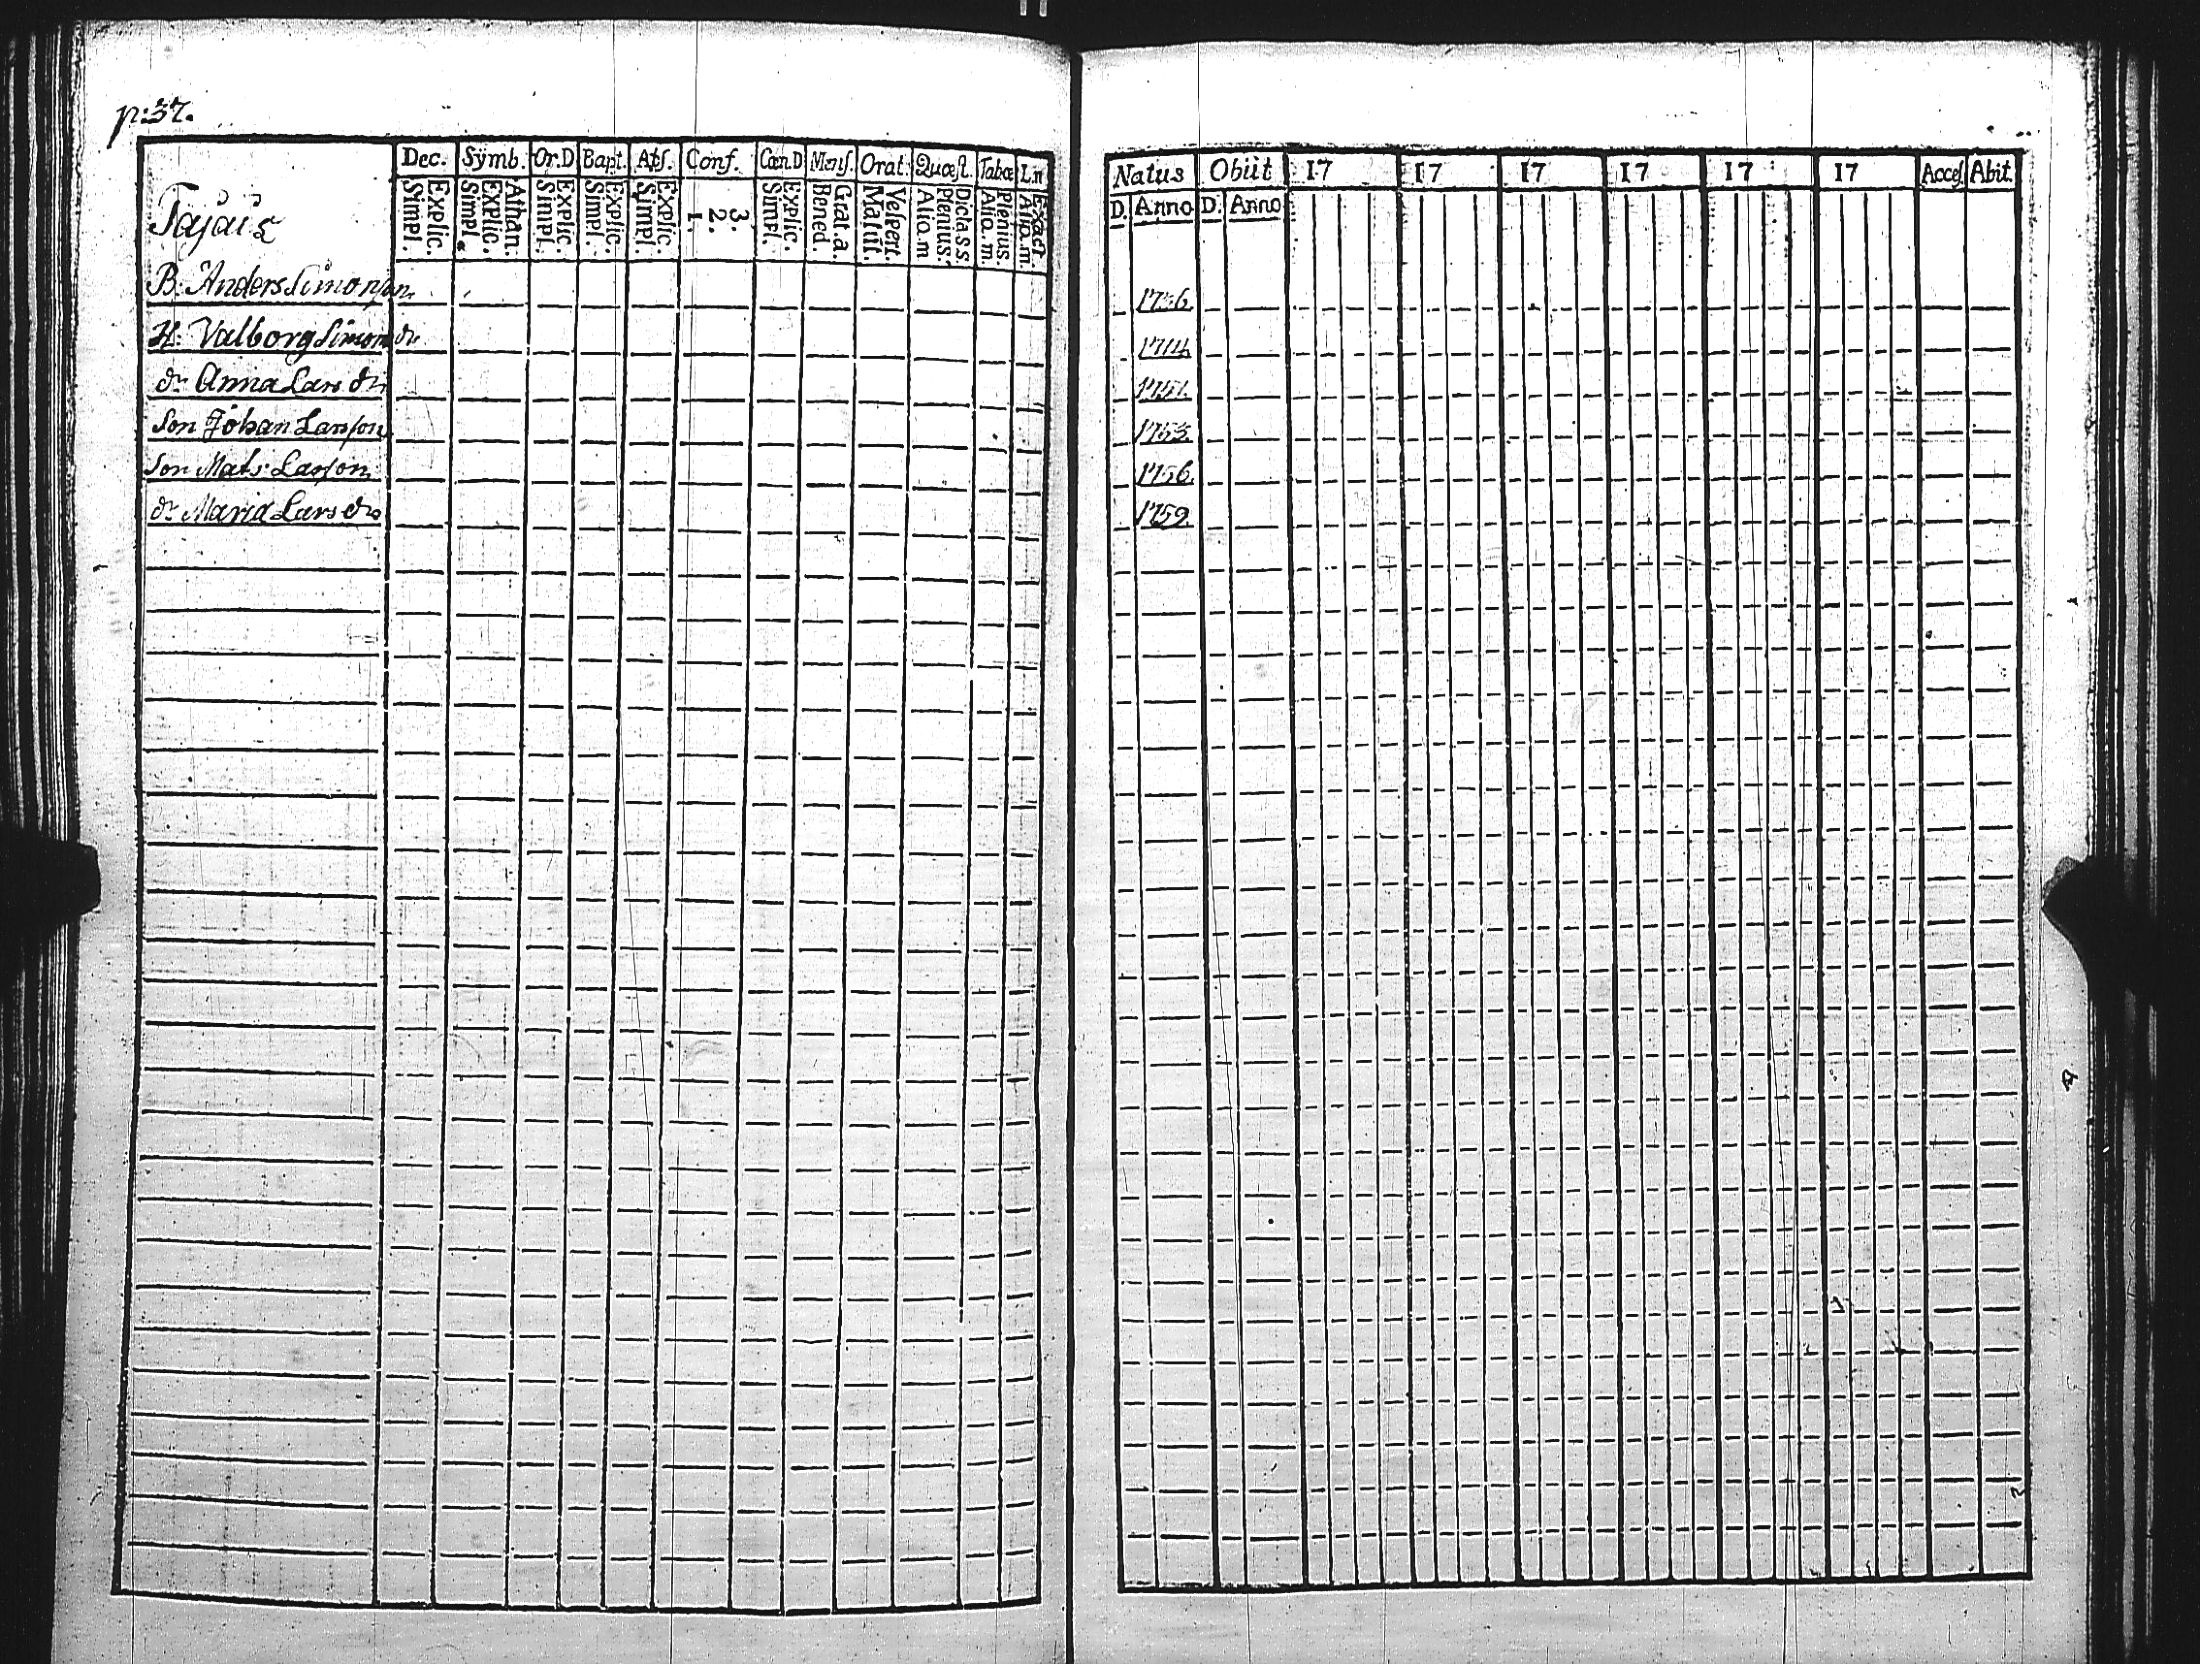 p:37.
Dec. Symb. Or.D Bapt. Abs. Conf. Cœn.D Mens. Orat. Quæst. Tabœ L.n
Simpl. Explic. Simpl. Explic. Athan. Simpl. Explic. Simpl. Explic. Simpl. Explic. 1. 2. 3. Simpl. Explic. Bened. Grat.a. Matut. Vespert. Alio.m Plenius. Dicta S.S. Alio.m. Plenius. Alio.m. Exact.
B: Anders Simonson
H: Valborg Simons dr
dr Anna Lars dr
Son Johan Larsson
Son Mats Larsson
dr Maria Lars dr
Natus Obiit 17 17 17 17 17 17 Acces. Abit.
D. Anno D. Anno
1714
1751.
1753.
1756.
1759.